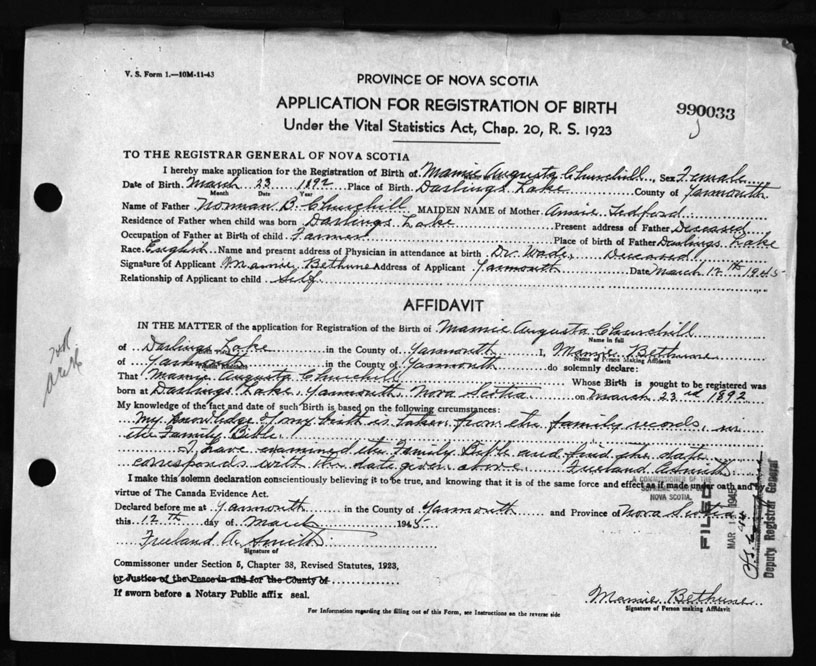 V. S. Form 1.—10M-11-43
PROVINCE OF NOVA SCOTIA
APPLICATION FOR REGISTRATION OF BIRTH
990033
Under the Vital Statistics Act, Chap. 20, R. S. 1923
TO THE REGISTRAR GENERAL OF NOVA SCOTIA
I hereby make application for the Registration of Birth of Mamie Augusta Churchill, Sex Female
Date of Birth March 23 1892 Place of Birth Darlings Lake County of Yarmouth
Month Date Year
Name of Father Norman B. Churchill MAIDEN NAME of Mother Annie Tedford
Residence of Father when child was born Darlings Lake Present address of Father Deceased
Occupation of Father at Birth of child Farmer Place of birth of Father Darlings Lake
Race English Name and present address of Physician in attendance at birth Dr. Wade, Deceased
Signature of Applicant Mamie Bethune Address of Applicant Yarmouth Date March 12th 1945
Relationship of Applicant to child Self
AFFIDAVIT
IN THE MATTER of the application for Registration of the Birth of Mamie Augusta Churchill
Name in full
of Darlings Lake in the County of Yarmouth I, Mamie Bethune
Name of Person Making Affidavit
of Yarmouth in the County of Yarmouth do solemnly declare:
That Mamie Augusta Churchill Whose Birth is sought to be registered was
born at Darlings Lake, Yarmouth, Nova Scotia on March 23rd 1892
My knowledge of the fact and date of such Birth is based on the following circumstances:
My knowledge of my birth is taken from the family records, in
the Family Bible.
I have examined the Family Bible and find the date
corresponds with the date given above. Freeland A Smith
A COMMISSIONER OF THE
I make this solemn declaration conscientiously believing it to be true, and knowing that it is of the same force and effect as if made under oath and by
NOVA SCOTIA.
virtue of The Canada Evidence Act.
Declared before me at Yarmouth in the County of Yarmouth and Province of Nova Scotia
this 12th day of March 1945
Freeland A. Smith
Signature of
Commissioner under Section 5, Chapter 38, Revised Statutes, 1923,
or Justice of the Peace in and for the County of
If sworn before a Notary Public affix seal.
Mamie Bethune
Signature of Person making Affidavit
For Information regarding the filling out of this Form, see Instructions on the reverse side
FILED
MAR 1945
Deputy Registrar General